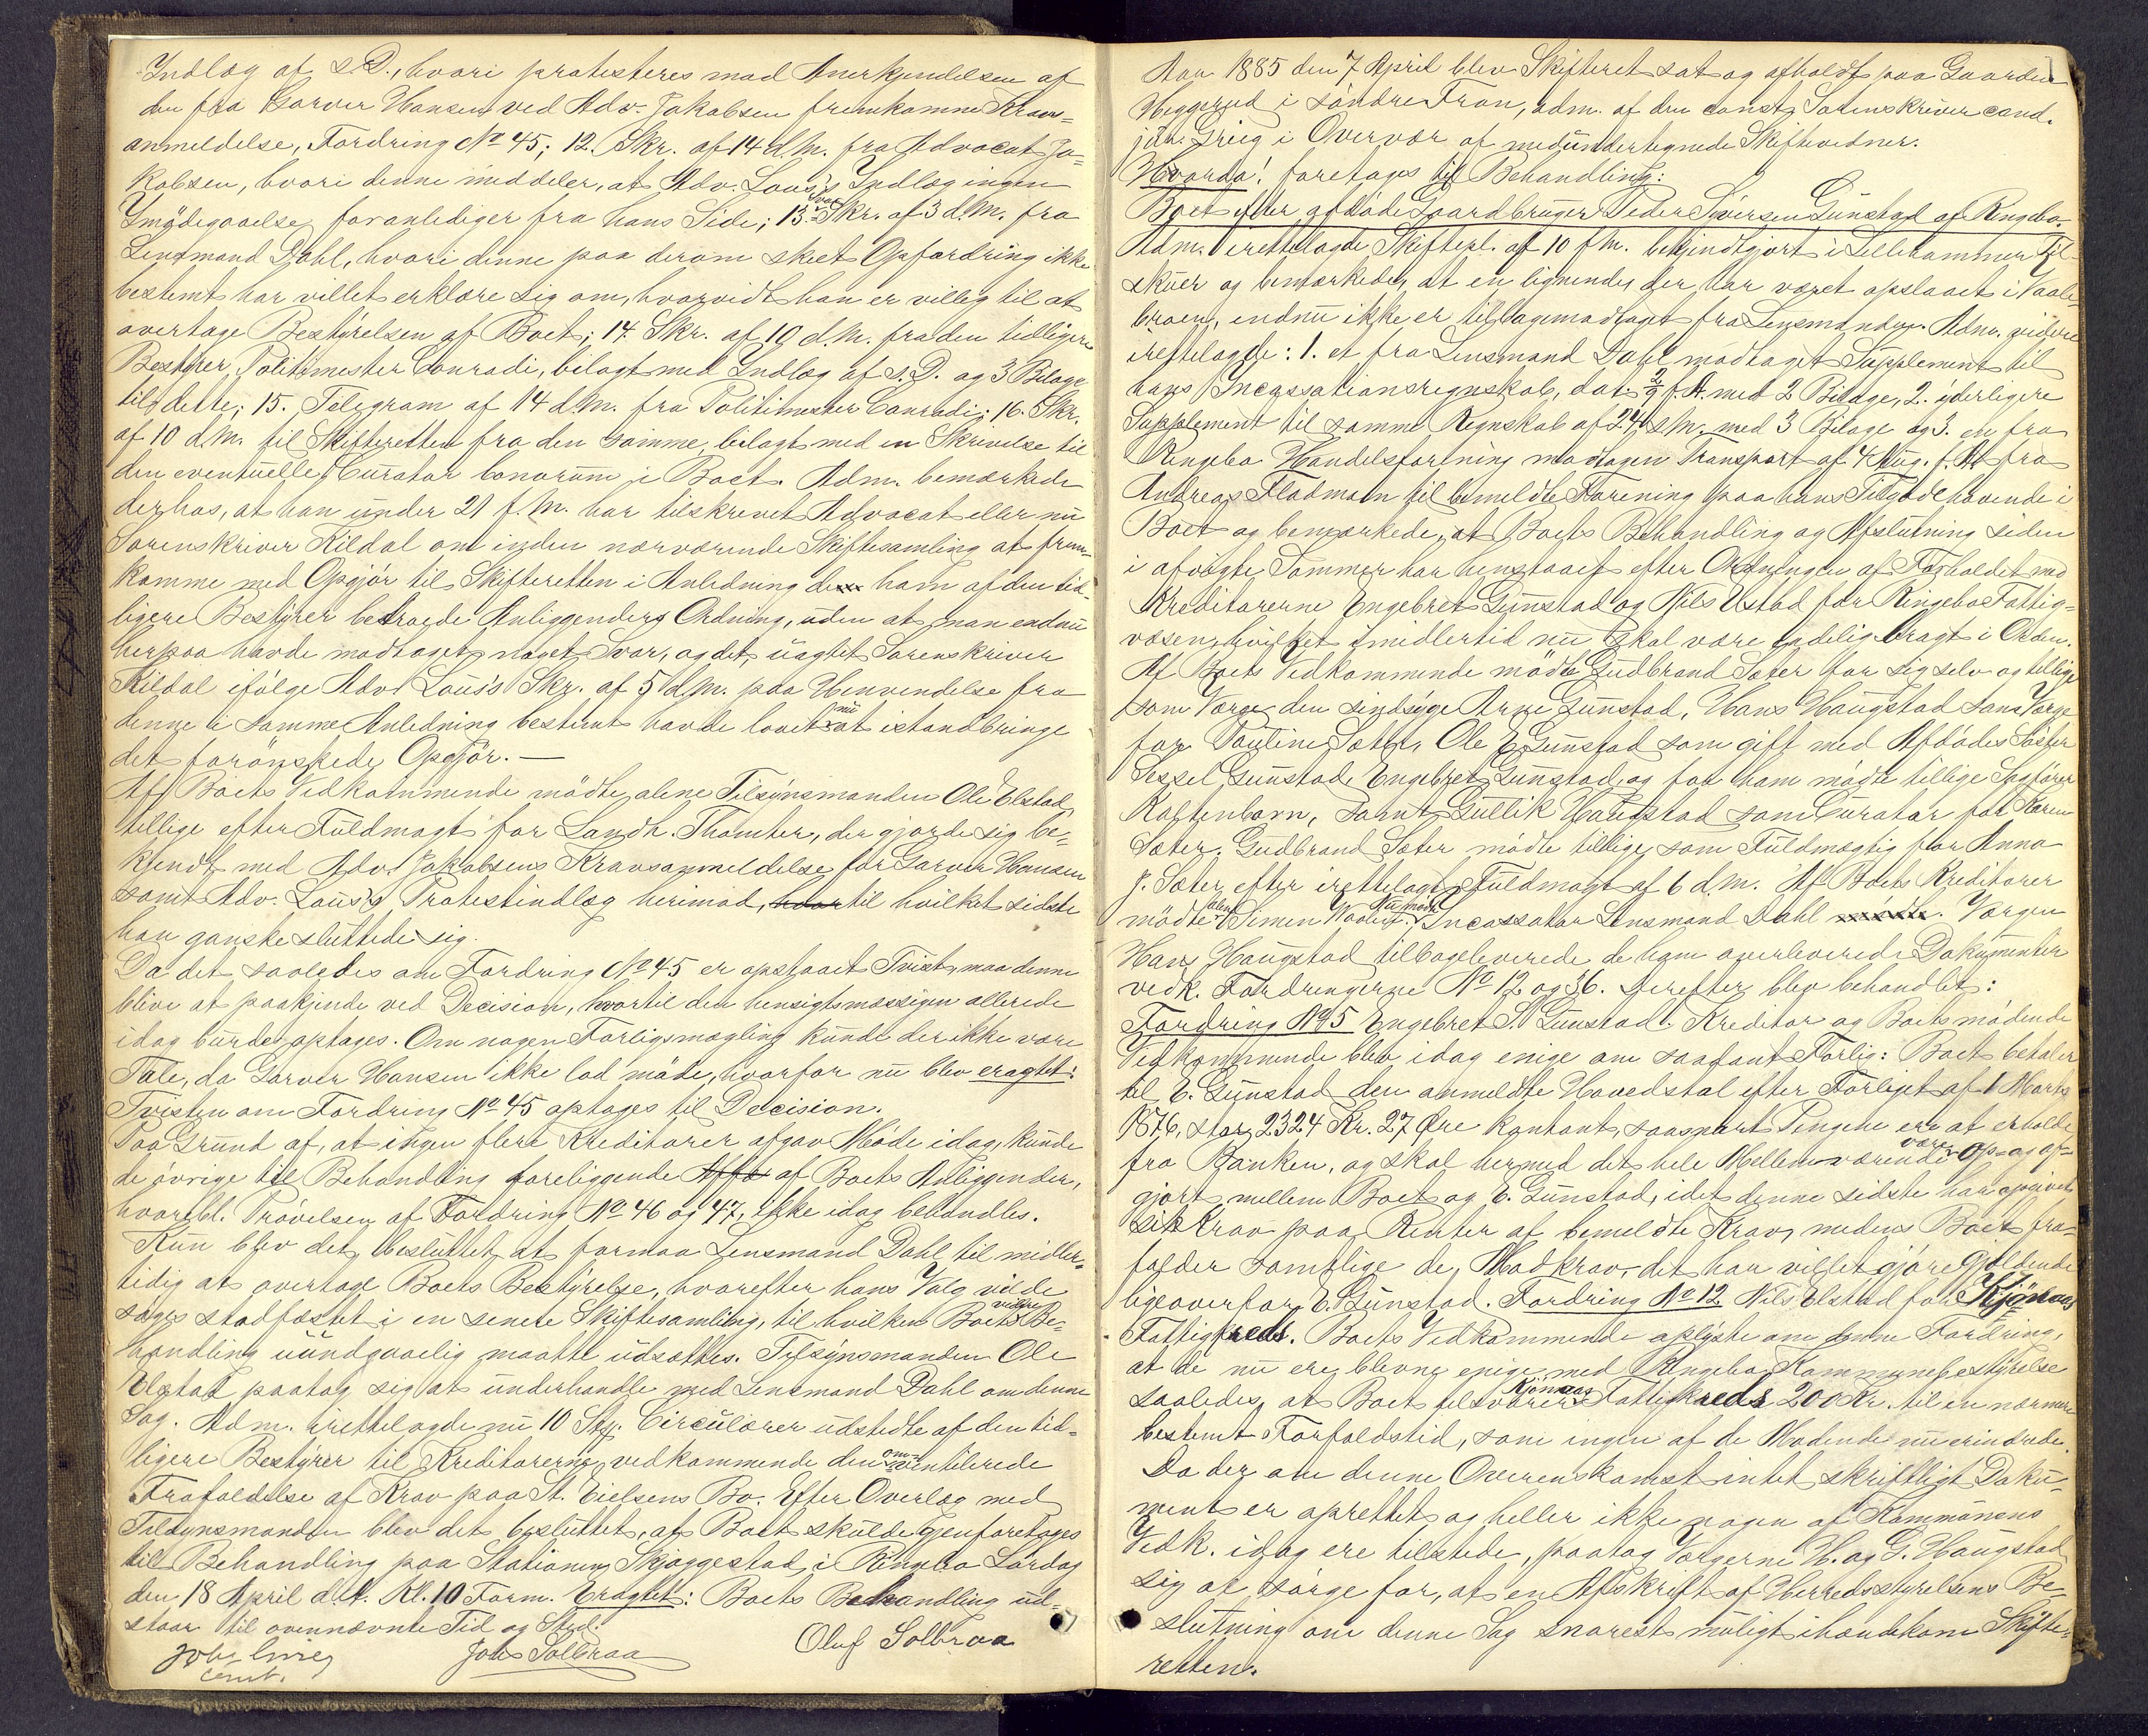 Indlæg af s. D., hvori protesteres mod Anerkjendelsen af
den fra Garver Hansen ved Adv. Jakobsen fremkomne Kravs=
anmeldelse, Fordring No 45; 12. Skr. af 14 d. M. fra Advocat Ja=
kobsen, hvori denne meddeler, at Adv. Lous's Indlæg ingen
Imødegaaelse foranlediger fra hans Side; 13. Svar Skr. af 3 d. M. fra
Lensmand Dahl, hvori denne paa derom skeet Opfordring ikke
bestemt har villet erklære sig om, hvorvidt han er villig til at
overtage Bestyrelsen af Boet; 14. Skr. af 10 d. M. fra den tidligere
Bestyrer, Politimester Conradi, bilagt med Indlæg af s. D. og 3 Bilage
til dette; 15. Telegram af 14 d. M. fra Politimester Conradi; 16. Skr.
af 10 d. M. til Skifteretten fra den samme, bilagt med en Skrivelse til
den eventuelle Curator bonorum i Boet. Adm. bemærkede
derhos, at han under 21 f. M. har tilskrevet Advocat eller nu
Sorenskriver Kildal om inden nærværende Skiftesamling at frem=
komme med Opgjør til Skifteretten i Anledning de ham af den tid=
ligere Bestyrer betroede Anliggenders Ordning, uden at man endnu
herpaa havde modtaget noget Svar, og det uagtet Sorenskriver
Kildal ifølge Adv. Lous's Skr. af 5 d. M. paa Henvendelse fra
denne i samme Anledning bestemt havde lovet nu at istandbringe
det forønskede Opgjør. —
Af Boets Vedkommende mødte alene Tilsynsmanden Ole Elstad,
tillige efter Fuldmagt for Landh. Thomter, der gjorde sig be=
kjendt med Adv. Jakobsens Kravsanmeldelse for Garver Hansen
samt Adv. Lous's Protestindlæg herimod, hvor til hvilket sidste
han ganske sluttede sig.
Da det saaledes om Fordring No 45 er opstaaet Tvist, maa denne
blive at paakjende ved Decision, hvortil den hensigtsmæssigen allerede
idag burde optages. Om nogen Forligsmægling kunde der ikke være
Tale, da Garver Hansen ikke lod møde, hvorfor nu blev eragtet:
Tvisten om Fordring No 45 optages til Decision.
Paa Grund af, at ingen flere Kreditorer afgav Møde idag, kunde
de øvrige til Behandling foreliggende Affæ af Boets Anliggender,
hvoribl. Prøvelsen af Fordring No 46 og 47, ikke idag behandles.
Kun blev det besluttet at formaa Lensmand Dahl til midler=
tidig at overtage Boets Bestyrelse, hvorefter hans Valg vilde
søges stadfæstet i en senere Skiftesamling, til hvilken Boets videre Be=
handling uundgaaelig maatte udsættes. Tilsynsmanden Ole
Elstad paatog sig at underhandle med Lensmand Dahl om denne
Sag. Adm. irettelagde nu 10 Stk. Circulærer udstedte af den tid=
ligere Bestyrer til Kreditorerne vedkommende den om= ventilerede
Frafaldelse af Krav paa St. Eielsens Bo. Efter Overlæg med
Tilsynsmanden blev det besluttet, at Boet skulde gjenforetages
til Behandling paa Stationen Skjæggestad i Ringebo Lørdag
den 18 April d. A. Kl. 10 Form. Eragtet: Boets Behandling ud=
staar til ovennævnte Tid og Sted.
Joh. Grieg Johs Solbraa Oluf Solbraa
const.
Aar 1885 den 7 April blev Skifteret sat og afholdt paa Gaarden
Heggerud i søndre Fron, adm. af den const. Sorenskriver cand.
jur. Grieg i Overvær af medundertegnede Skiftevidner.
Hvorda! foretoges til Behandling:
Boet efter afdøde Gaardbruger Peder Syversen Gunstad af Ringebo.
Adm. irettelagde Skifterl. af 10 f. M. bekjendtgjort i Lillehammer Til=
skuer og bemærkede, at en lignende, der har været opslaaet i Vaale=
broen, endnu ikke er tilbagemodtaget fra Lensmanden. Adm. videre
irettelagde: 1. et fra Lensmand Dahl modtaget Supplement til
hans Incassationsregnskab, dat. 2/9 f. A. med 2 Bilage, 2. yderligere
Supplement til samme Regnskab af 24 s. M. med 3 Bilage og 3. en fra
Ringebo Handelsforening modtagen Transport af 4 Aug. f. A. fra
Andreas Fladmoen til bemeldte Forening paa hans Tilgodehavende i
Boet og bemærkede, at Boets Behandling og Afslutning siden
i afvigte Sommer har henstaaet efter Ordningen af Forholdet med
Kreditorerne Engebret Gunstad og Nils Elstad for Ringebo Fattig=
væsen, hvilket imidlertid nu skal være endelig bragt i Orden.
Af Boets Vedkommende mødte Gudbrand Sæter for sig selv og tillige
som Værge den sindsyge Arne Gunstad, Hans Haugstad som Værge
for Pauline Sæter, Ole E. Gunstad som gift med Afdødes Søster
Sessel Gunstad, Engebret Gunstad, og for ham mødte tillige Sagfører
Kaltenborn, samt Gullik Haugstad som Curator for Karen
Sæter. Gudbrand Sæter mødte tillige som Fuldmægtig for Anna
J. Sæter efter irettelagt Fuldmagt af 6 d. M. Af Boets Kreditorer
mødte alene Simen Vaalen. Nu mødte Incassator Lensmand Dahl mødte. Værgen
Hans Haugstad tilbageleverede de ham overleverede Dokumenter
vedk. Fordringerne No 12 og 36. Derefter blev behandlet:
Fordring No 5 Engebret S. Gunstad. Kreditor og Boets mødende
Vedkommende blev idag enige om saadant Forlig: Boet betaler
til E. Gunstad den anmeldte Hovedstol efter Forliget af 1 Marts
1876, stor 2324 Kr. 27 Øre kontant, saasnart Pengene ere at erholde
fra Banken, og skal hermed det hele Mellemværende være op- og af=
gjort mellem Boet og E. Gunstad, idet denne sidste har opgivet
sit Krav paa Renter af bemeldte Krav, medens Boet fra=
falder samtlige de Modkrav, det har villet gjøre gjældende
ligeoverfor E. Gunstad. Fordring No 12 Nils Elstad for Kjønaas
Fattigkreds. Boets Vedkommende oplyste om denne Fordring,
at de nu ere blevne enige med Ringebo Kommunebestyrelse
saaledes, at Boet tilsvarer Kjønaas Fattigkreds 200 Kr. til en nærmere
bestemt Forfaldstid, som ingen af de Mødende nu erindrede.
Da der om denne Overenskomst intet skriftligt Doku=
ment er oprettet og heller ikke nogen af Kommunens
Vedk. idag ere tilstede, paatog Værgerne H. og G. Haugstad
sig at sørge for, at en Afskrift af Herredsstyrelsens Be=
slutning om denne Sag snarest muligt ihændekom Skifte=
retten.